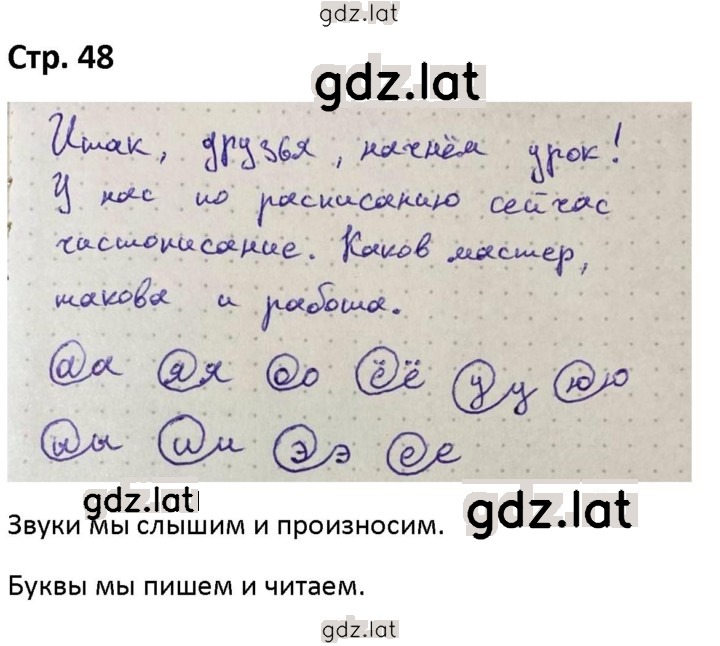 gdz.lat
Стр. 48
gdz.lat
Итак, друзья, начнём урок!
У нас по расписанию сейчас
чистописание. Каков мастер,
такова и работа.
а а я я о о ё ё у у ю ю
ы ы и и э э е е
gdz.lat
gdz.lat
Звуки мы слышим и произносим.
Буквы мы пишем и читаем.
gdz.lat